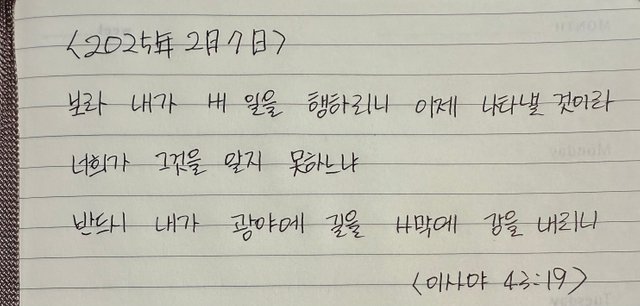 MONTH
<2025年 2月 7日>
보라 내가 새 일을 행하리니 이제 나타낼 것이라
Monday
너희가 그것을 알지 못하느냐
반드시 내가 광야에 길을 사막에 강을 내리니
<이사야 43:19>
Tuesday